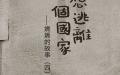 想逃離
個國家
——媽媽的故事(四)